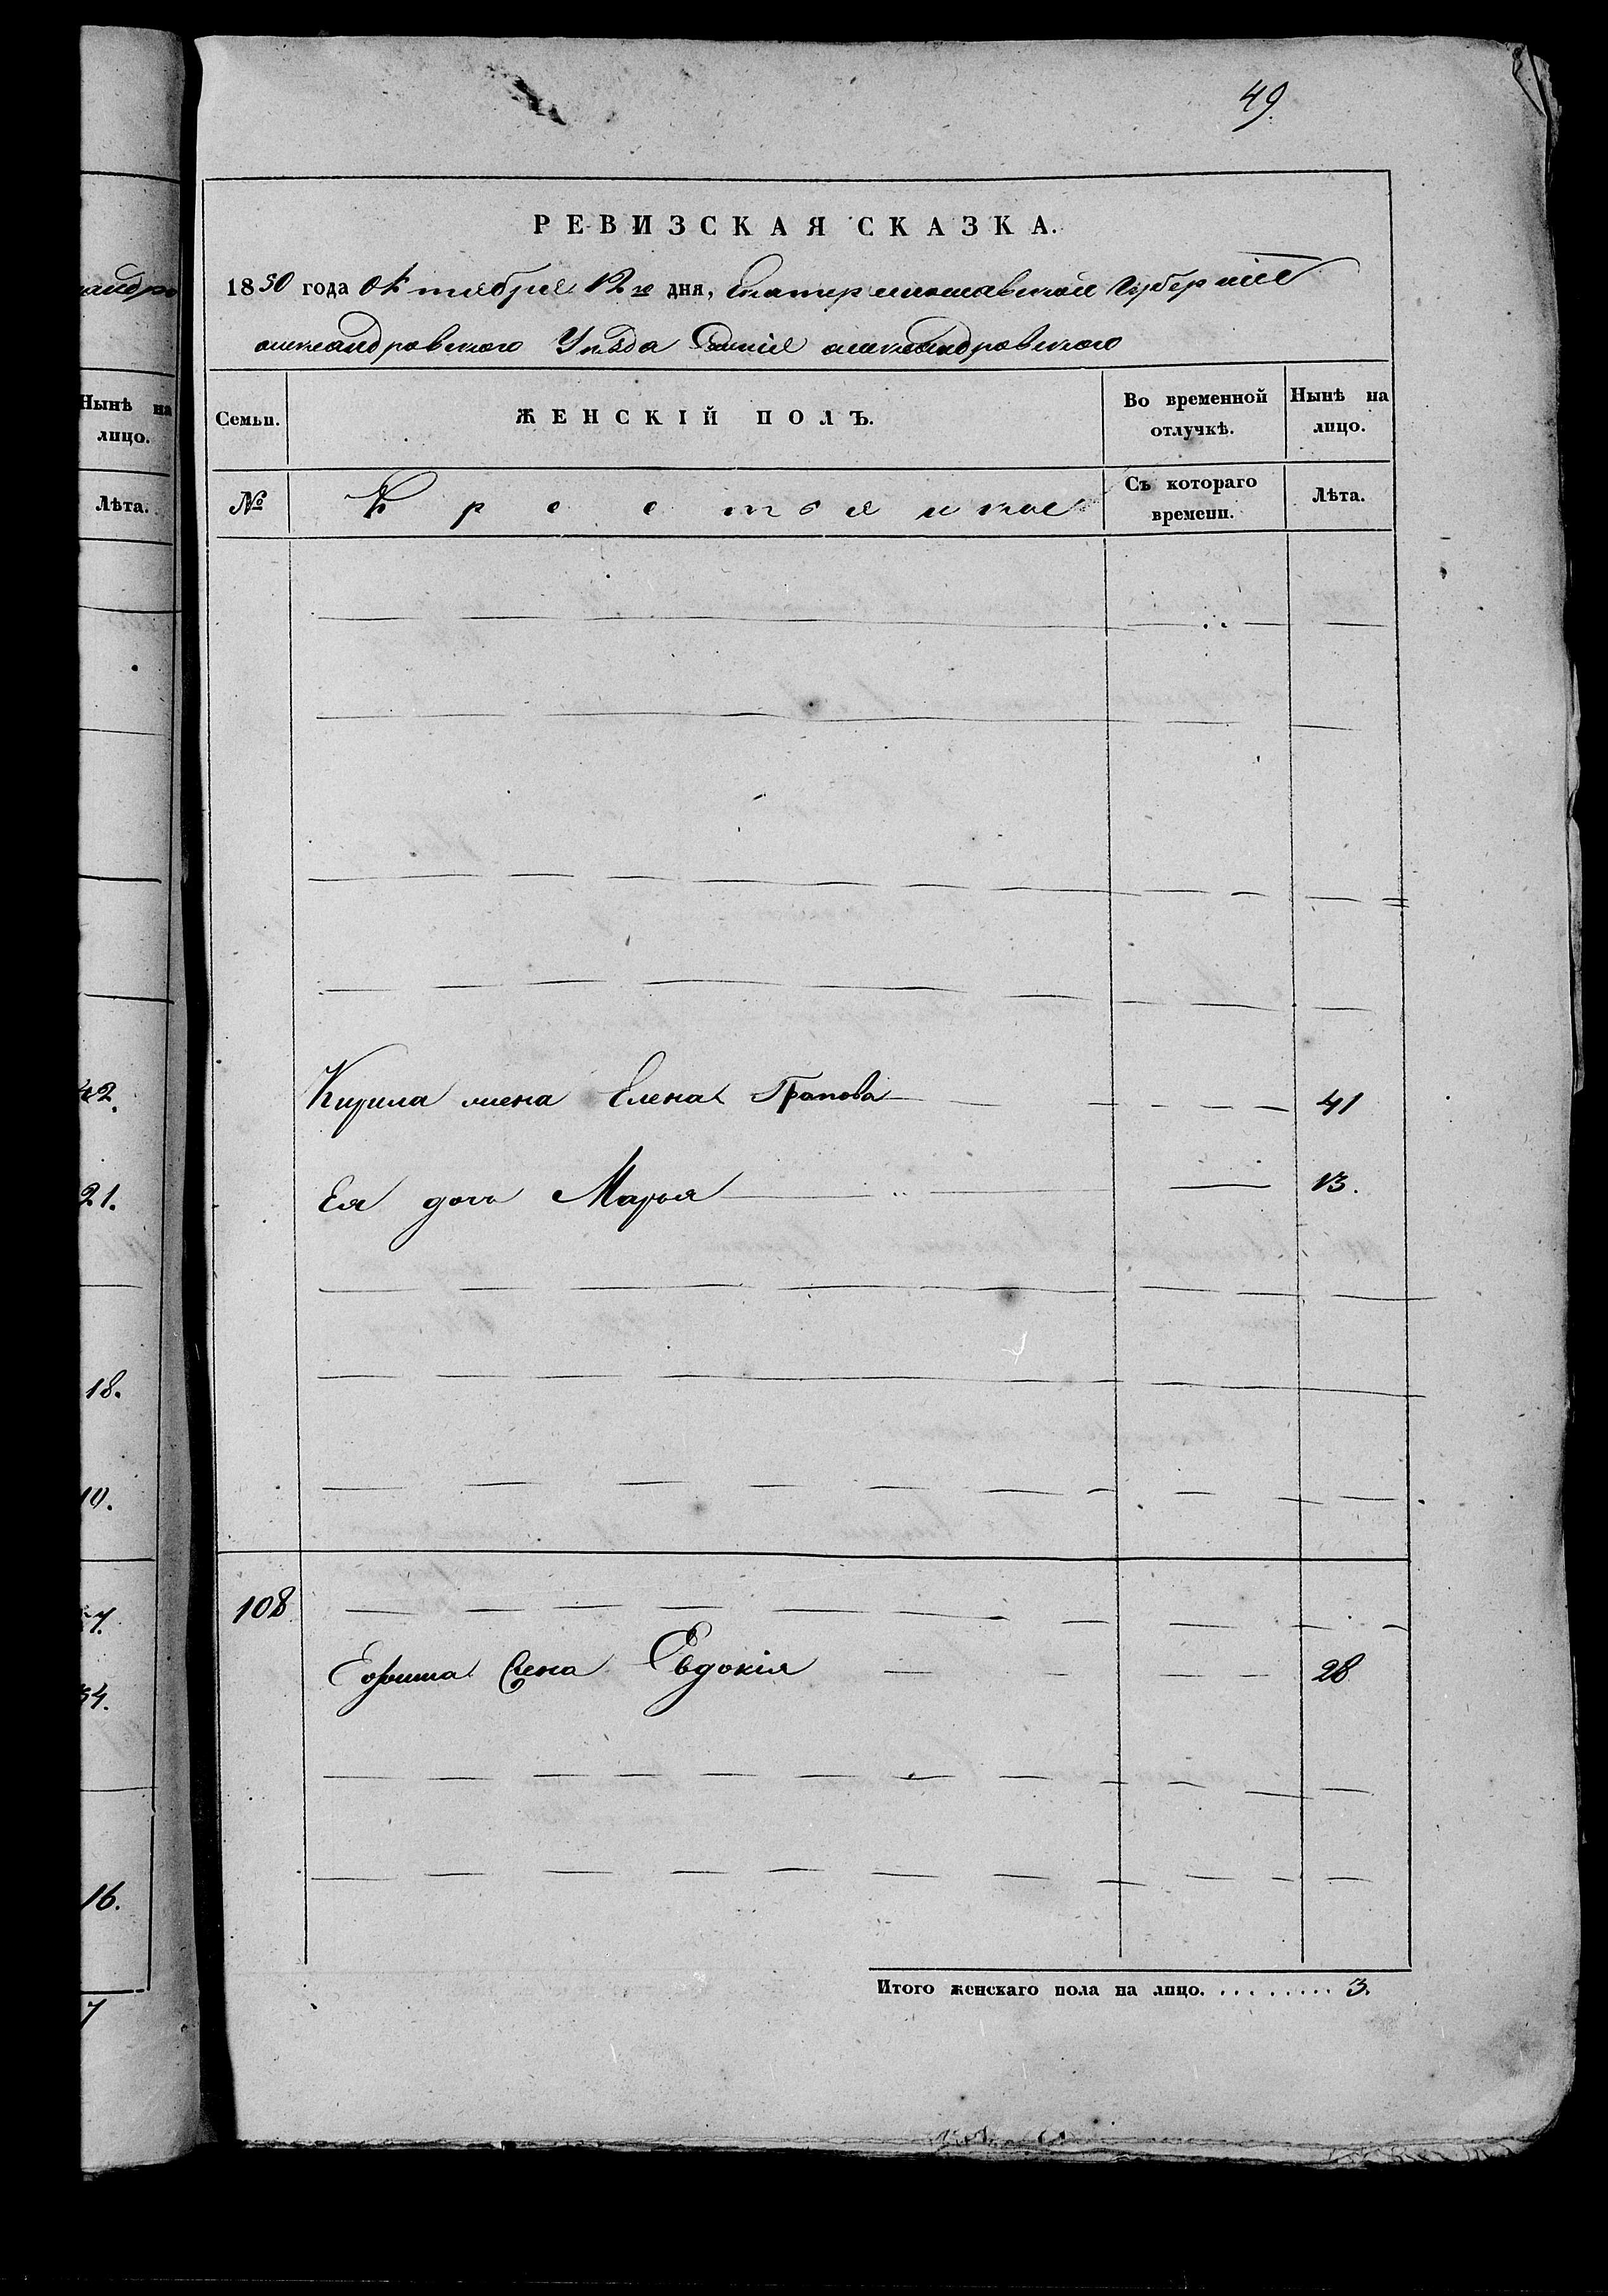 49.
РЕВИЗСКАЯ СКАЗКА.
1850 года Октября 12го дня, Екатеринославской Губерніи
александровского Уѣзда александровского
андро
Нынѣ на
лицо.
Лѣта.
42.
21.
18.
10.
54.
16.
7
Семьи.
ЖЕНСКІЙ ПОЛЪ.
Во временной
отлучкѣ.
Нынѣ на
лицо.
№
Крестьянка
Съ котораго
времени.
Лѣта.
Кирила жена Елена 41
Ея дочь Марья 13.
108
Ефима жена Евдокія 28
Итого женскаго пола на лицо. . . . . . . . . 3.